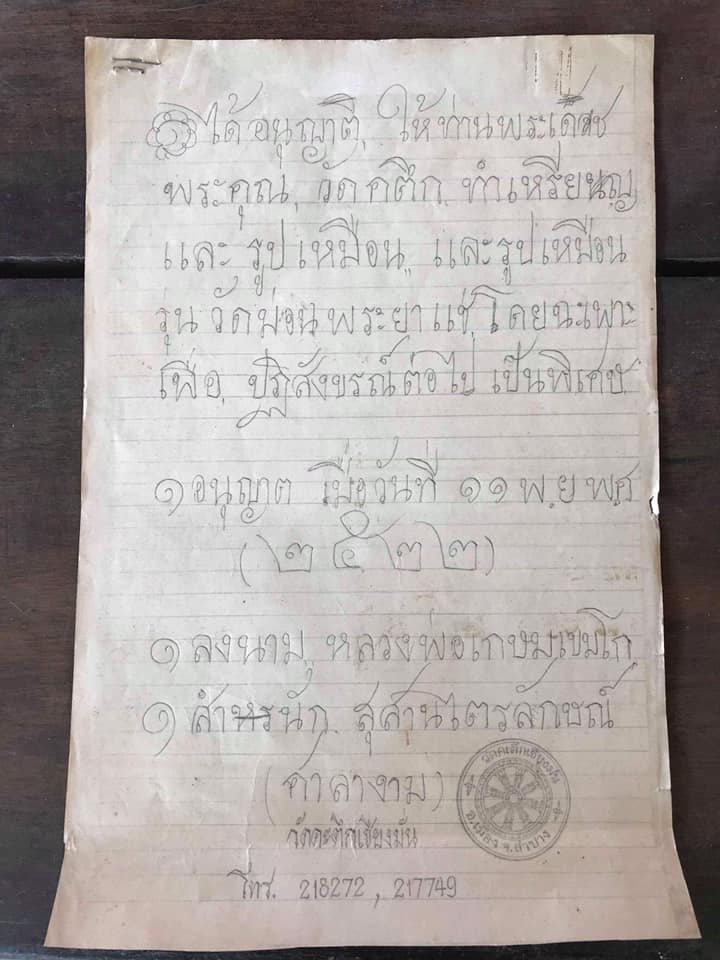 ๑ ได้อนุญาติ, ให้ท่านพระเดช
พระคุณ, วัดคตึก, ทำเหรียญ
และ รูปเหมือน, และรูปเหมือน
รุ่น วัดม่อนพระยาแช่ โดยฉะเพาะ
เพื่อ, ปฏิสังขรณ์ต่อไป เป็นพิเศษ
๑ อนุญาต เมื่อวันที่ ๑๑ พ.ย พ.ศ
(๒๕๒๒)
๑ ลงนาม, หลวงพ่อเกษมเขมโก
๑ สำนัก, สุสานไตรลักษณ์
(ศาลางาม)
วัดคะตึกเชียงมั่น
โทร. 218272, 217749
วัดคะตึกเชียงมั่น
อ.เมือง จ.ลำปาง